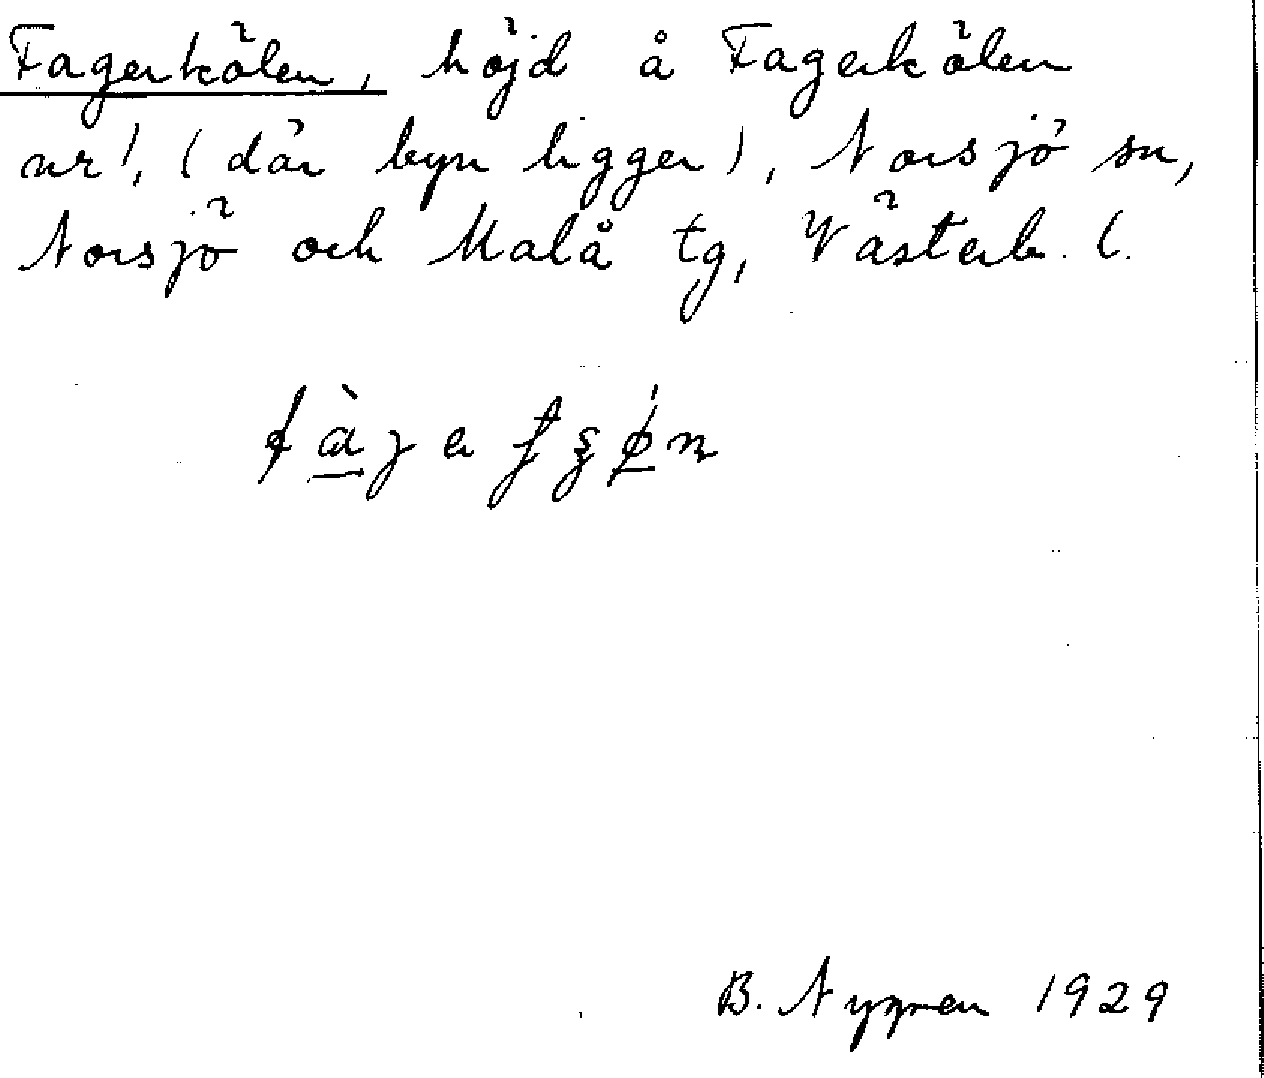 Fagerkölen, höjd å Fagerkölen
nr 1, (där byn ligger), Norsjö sn,
Norsjö och Malå tg, Västerb. l.
B. Nygren 1929